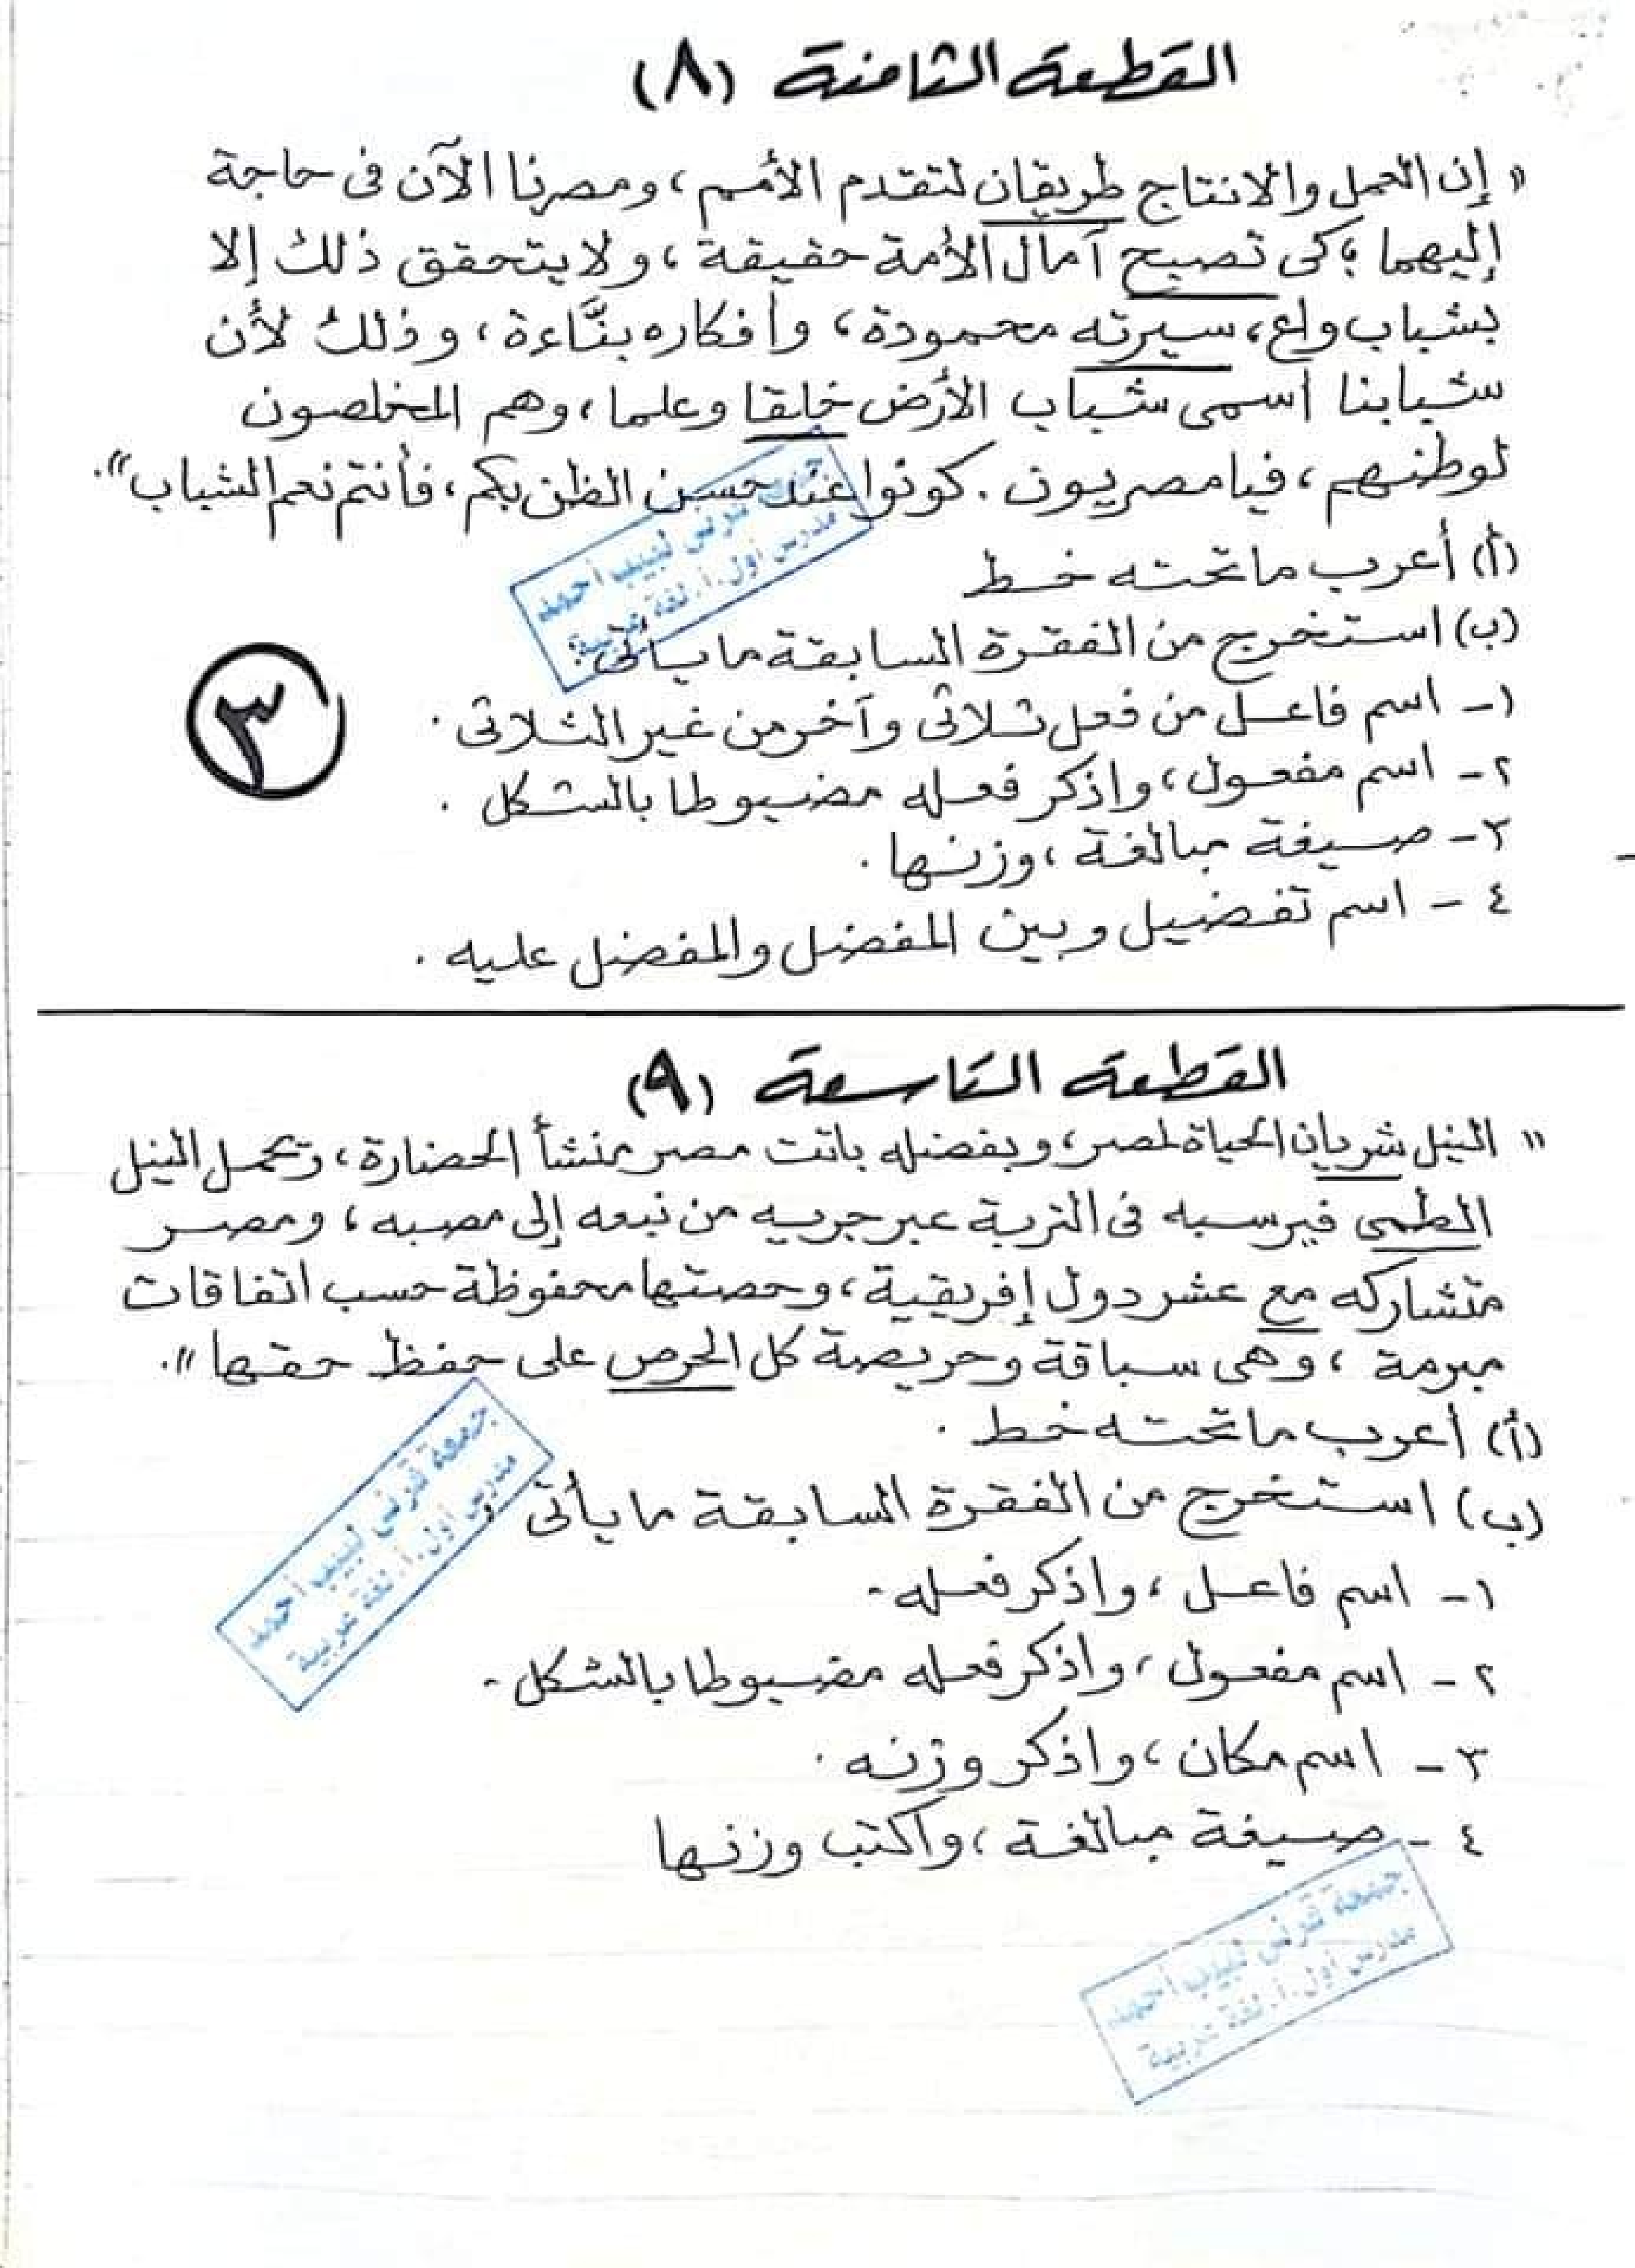 القطعة الثامنة (٨)
" إن العمل والانتاج طريقان لتقدم الأمم ، ومصرنا الآن فى حاجة
إليهما ؛ كى تصبح آمال الأمة حقيقة ، ولا يتحقق ذلك إلا
بشباب واعٍ ، سيرته محمودة ، وأفكاره بنَّاءة ، وذلك لأن
شبابنا أسمى شباب الأرض خلقا وعلما ، وهم المخلصون
لوطنهم ، فيا مصريون . كونوا عند حسن الظن بكم ، فأنتم نعم الشباب " .
(أ) أعرب ما تحته خط
(ب) استخرج من الفقرة السابقة ما يأتى :
١- اسم فاعل من فعل ثلاثى وآخر من غير الثلاثى .
٢- اسم مفعول ، واذكر فعله مضبوطا بالشكل .
٣- صيغة مبالغة ، وزنها .
٤- اسم تفضيل وبين المفضل والمفضل عليه .
٣
القطعة التاسعة (٩)
" النيل شريان الحياة لمصر ، وبفضله باتت مصر منشأ الحضارة ، ويحمل النيل
الطمى فيرسبه فى التربة عبر جريه من نبعه إلى مصبه ، ومصر
متشاركه مع عشر دول إفريقية ، وحصتها محفوظة حسب اتفاقات
مبرمة ، وهى سباقة وحريصة كل الحرص على حفظ حقها " .
(أ) أعرب ما تحته خط .
(ب) استخرج من الفقرة السابقة ما يأتى
١- اسم فاعل ، واذكر فعله .
٢- اسم مفعول ، واذكر فعله مضبوطا بالشكل .
٣- اسم مكان ، واذكر وزنه .
٤- صيغة مبالغة ، واكتب وزنها
جمعة قرنى لبيب أحمد
مدرس أول .أ. لغة عربية
جمعة قرنى لبيب أحمد
مدرس أول .أ. لغة عربية
جمعة قرنى لبيب أحمد
مدرس أول .أ. لغة عربية